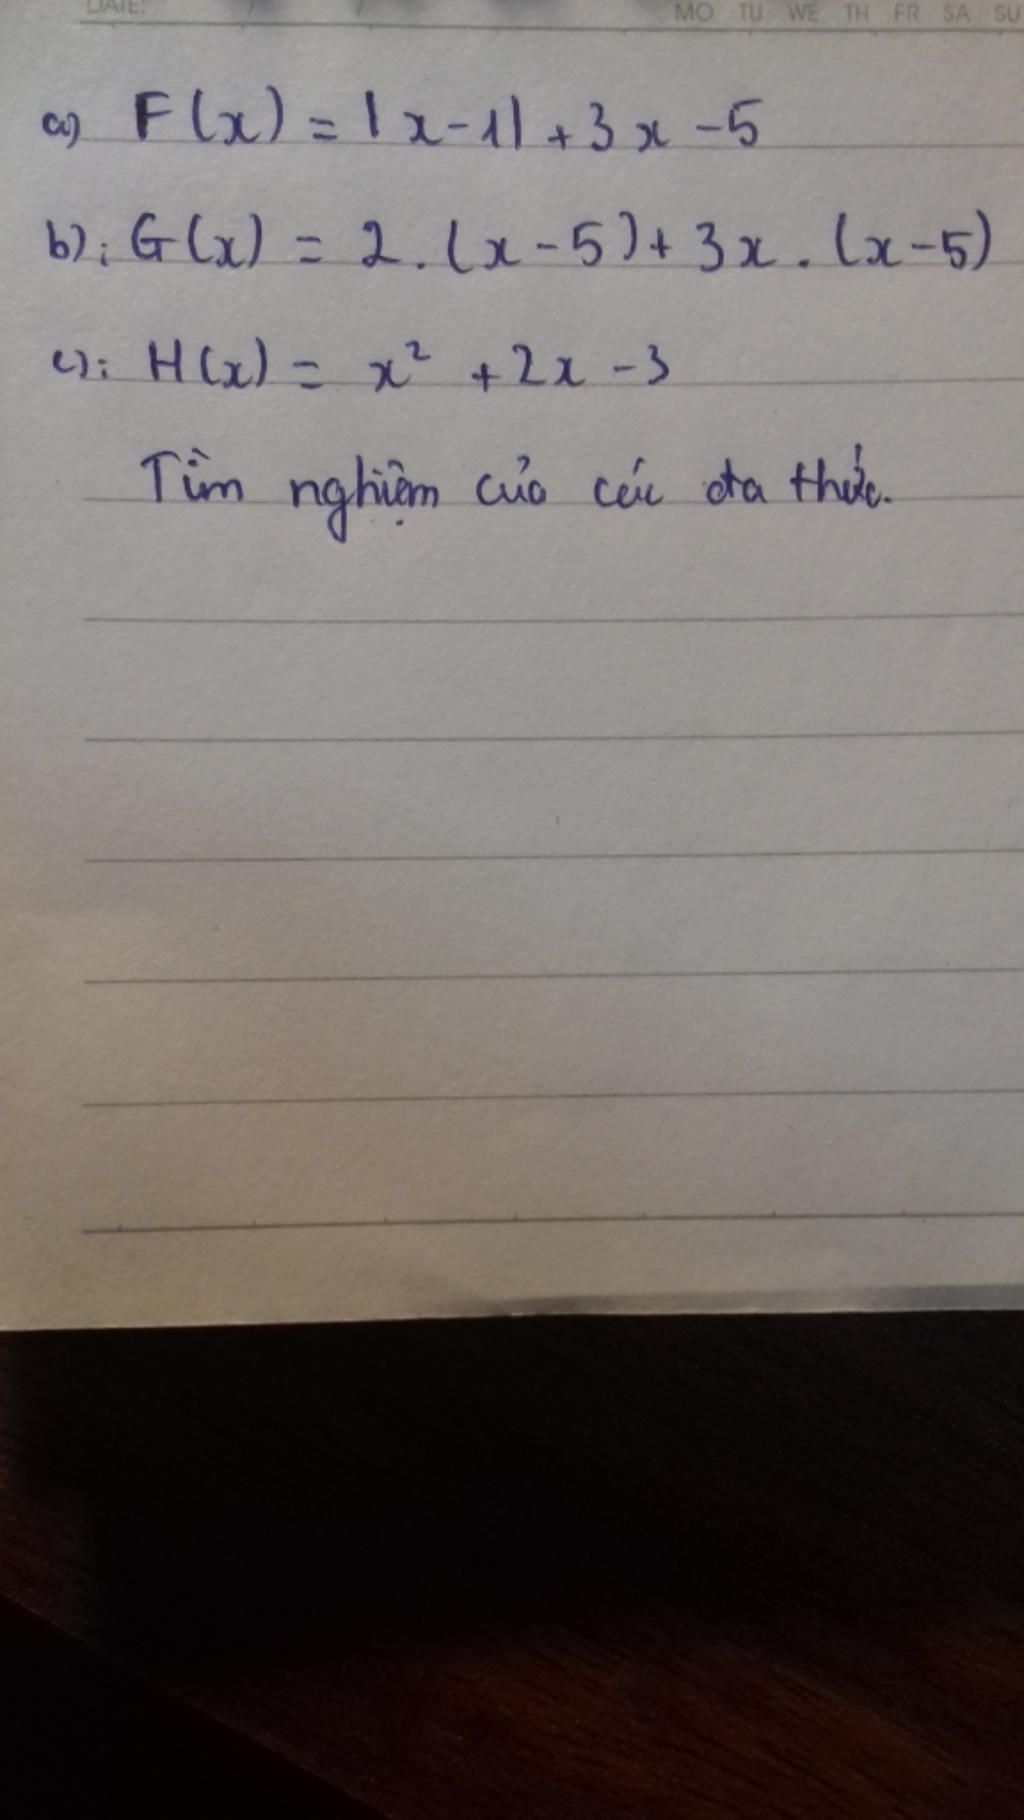 DATE: / / MO TU WE TH FR SA SU
a) F(x) = |x-1| + 3x - 5
b): G(x) = 2.(x-5) + 3x.(x-5)
c): H(x) = x² + 2x - 3
Tìm nghiệm của các đa thức.